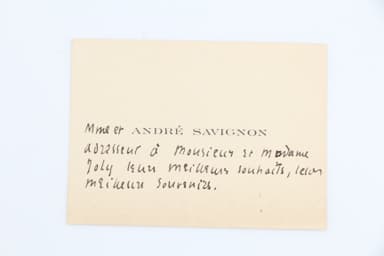 Mme et ANDRÉ SAVIGNON
adressent à Monsieur et Madame
Joly leurs meilleurs souhaits, leurs
meilleurs souvenirs.